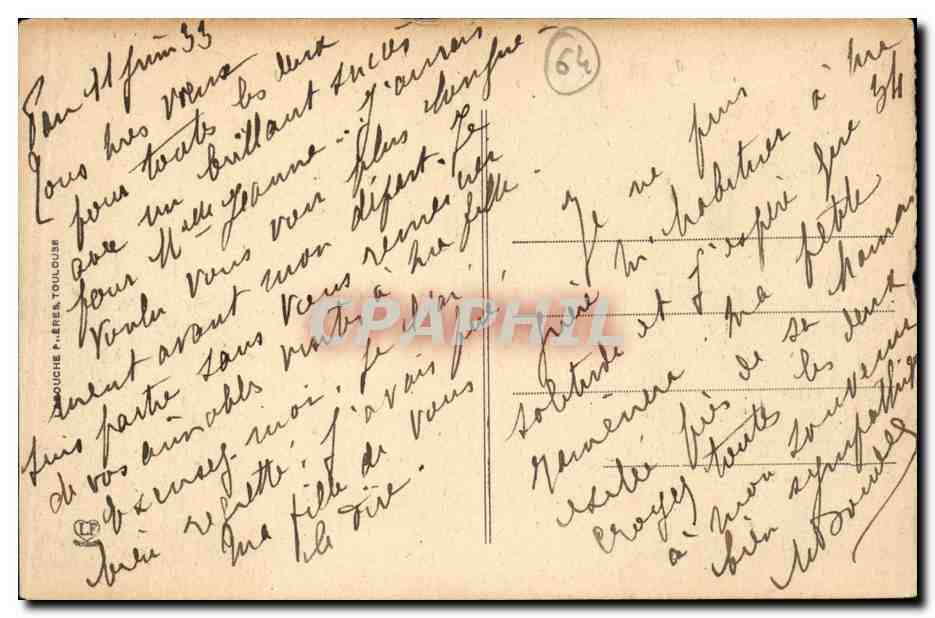 Pau 11 juin 33
Tous mes voeux
pour toutes les deux
avec un brillant succès
pour Melle Jeanne. J'aurais
voulu vous voir plus longue-
ment avant mon départ. Je
suis partie sans vous remercier
de vos aimables visites à ma fille.
Excusez-moi, je l'ai
bien regretté. J'avais prié
ma fille de vous
le dire.
64
Je ne puis
guère m'habituer à ma
solitude et j'espère que 34
ramènera ma petite
exilée près de sa maman
croyez toutes les deux
à mon souvenir
bien sympathique
LABOUCHE FRÈRES, TOULOUSE
LF
CPAPHIL